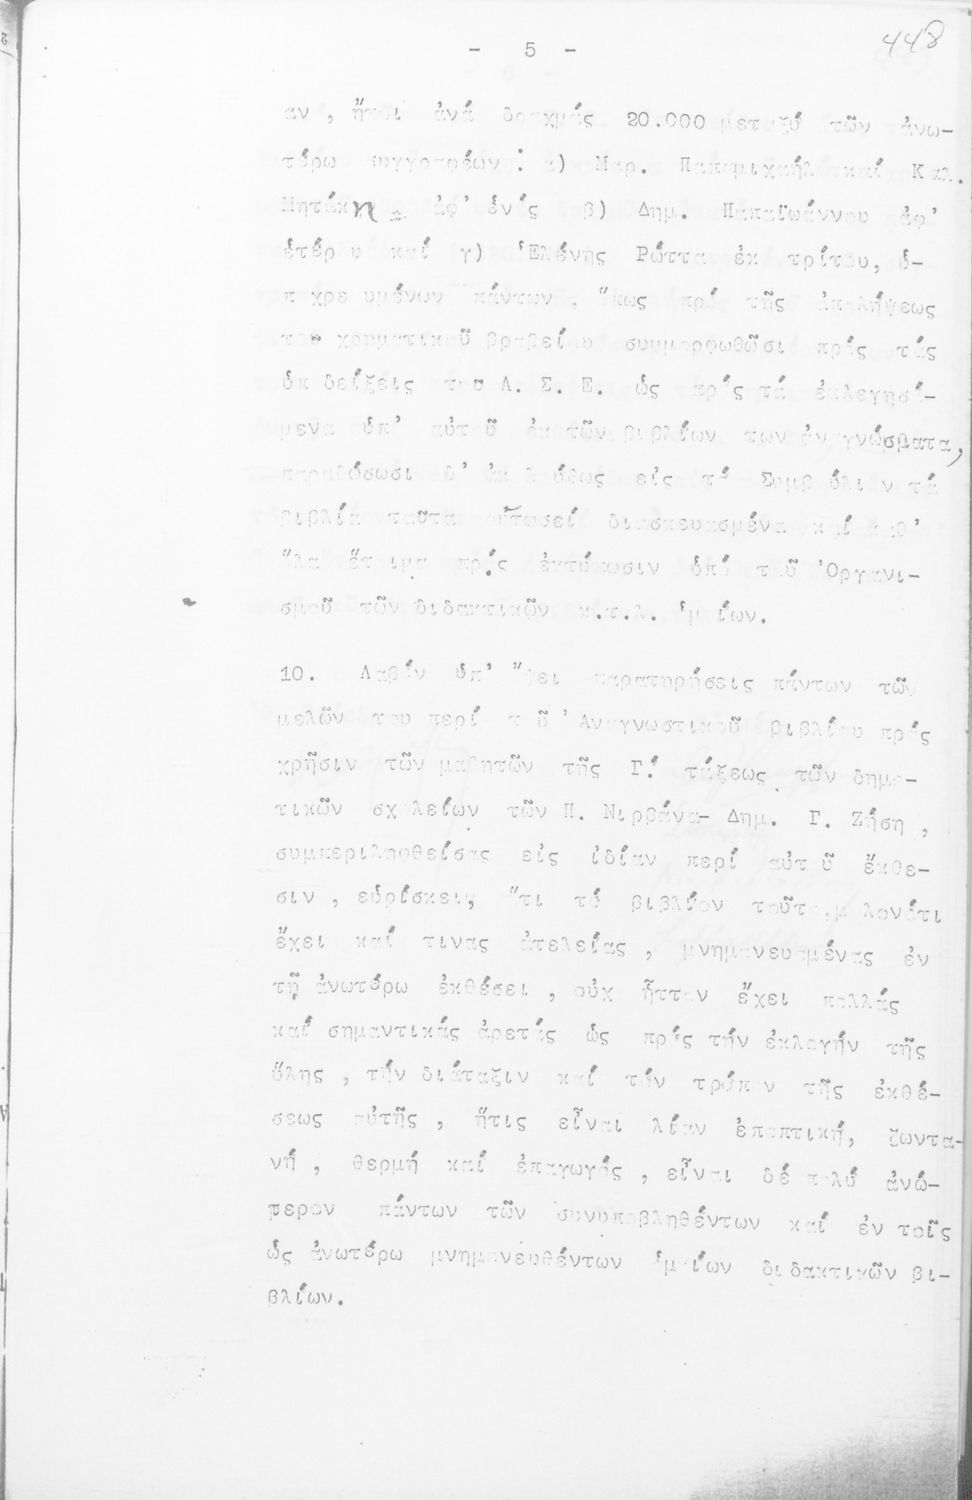 - 5 -
448
αν, ἤτοι ἀνά δραχμάς 20.000 μεταξύ τῶν ἀνω-
τέρω συγγραφέων: α) Μαρ. Παπαμιχαήλ καί Καλ.
Μητάκη ἀφ' ἑνός β) Δημ. Παπαϊωάννου ἀφ'
ἑτέρου καί γ) Ἑλένης Ρώττα ἐκ τρίτου, ὑ-
ποχρεουμένων πάντων ὅπως πρό τῆς ἀπολήψεως
τοῦ χρηματικοῦ βραβείου συμμορφωθῶσι πρός τάς
ὑποδείξεις του Α. Σ. Ε. ὡς πρός τά ἐκλεγησό-
μενα ὑπ' αὐτοῦ ἐκ τῶν βιβλίων των ἀναγνώσματα,
παραδώσωσι δ' ἀκολούθως εἰς τό Συμβούλιον τά
βιβλία ταῦτα οὕτωσεί διασκευασμένα καί καθ'
ὅλα ἕτοιμα πρός ἐκτύπωσιν ὑπό τοῦ Ὀργανι-
σμοῦ τῶν διδακτικῶν κ.τ.λ. βιβλίων.
10. Λαβόν ὑπ' ὄψει παρατηρήσεις πάντων τῶν
μελῶν του περί τοῦ Ἀναγνωστικοῦ βιβλίου πρός
χρῆσιν τῶν μαθητῶν τῆς Γ΄ τάξεως τῶν δημο-
τικῶν σχολείων τῶν Π. Νιρβάνα- Δημ. Γ. Ζήση,
συμπεριληφθείσας εἰς ἰδίαν περί αὐτοῦ ἔκθε-
σιν, εὑρίσκει, ὅτι τό βιβλίον τοῦτο, μολονότι
ἔχει καί τινας ἀτελείας, μνημονευομένας ἐν
τῇ ἀνωτέρω ἐκθέσει, οὐχ ἧττον ἔχει πολλάς
καί σημαντικάς ἀρετάς ὡς πρός τήν ἐκλογήν τῆς
ὕλης, τήν διάταξιν καί τόν τρόπον τῆς ἐκθέ-
σεως αὐτῆς, ἥτις εἶναι λίαν ἐποπτική, ζωντα-
νή, θερμή καί ἐπαγωγός, εἶναι δέ πολύ ἀνώ-
τερον πάντων τῶν συνυποβληθέντων καί ἐν τοῖς
ὡς ἀνωτέρω μνημονευθέντων ὁμοίων διδακτικῶν βι-
βλίων.